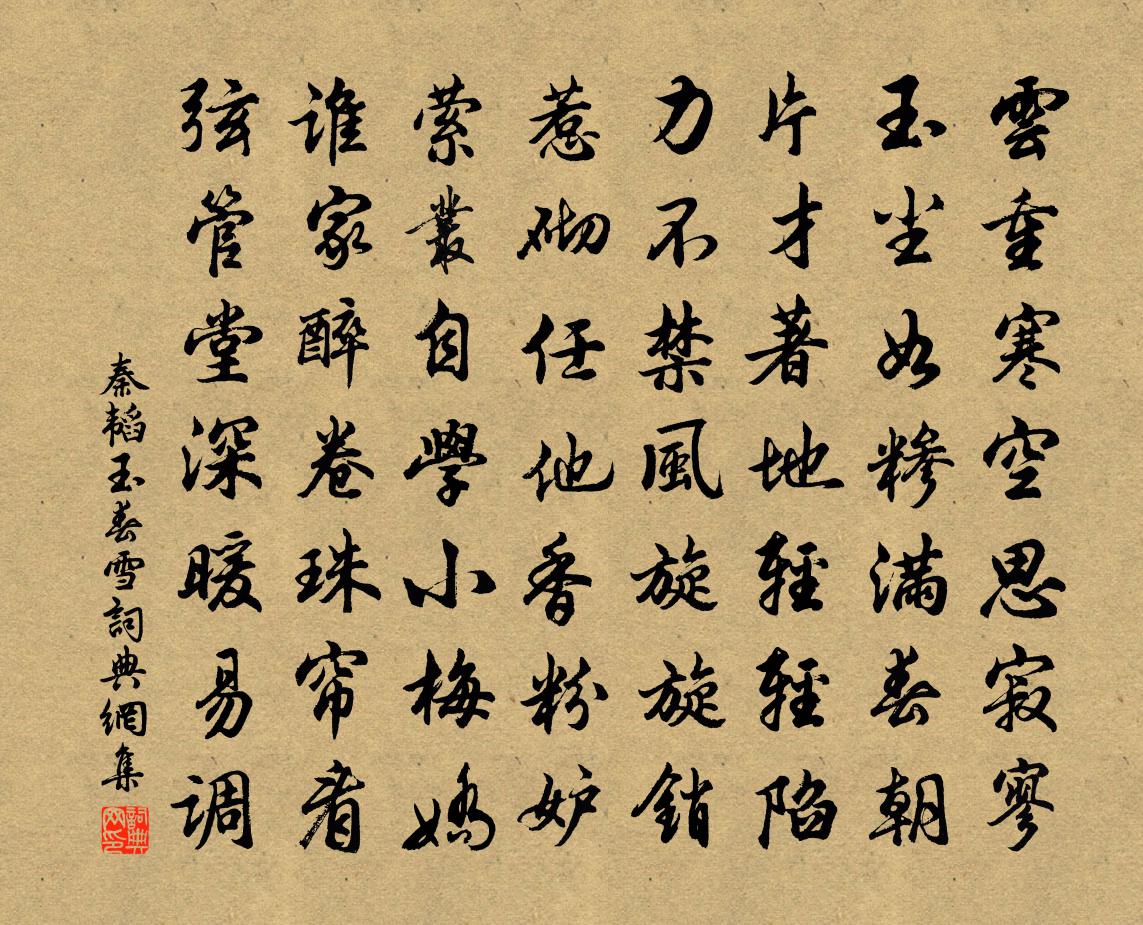 雲重寒空思寂寥
玉尘如糝满春朝
片才著地輕輕陷
力不禁風旋旋銷
惹砌任他香粉妒
萦叢自學小梅嬌
誰家醉卷珠帘看
弦管堂深暖易调
秦韬玉春雪詞典網集
詞典网印